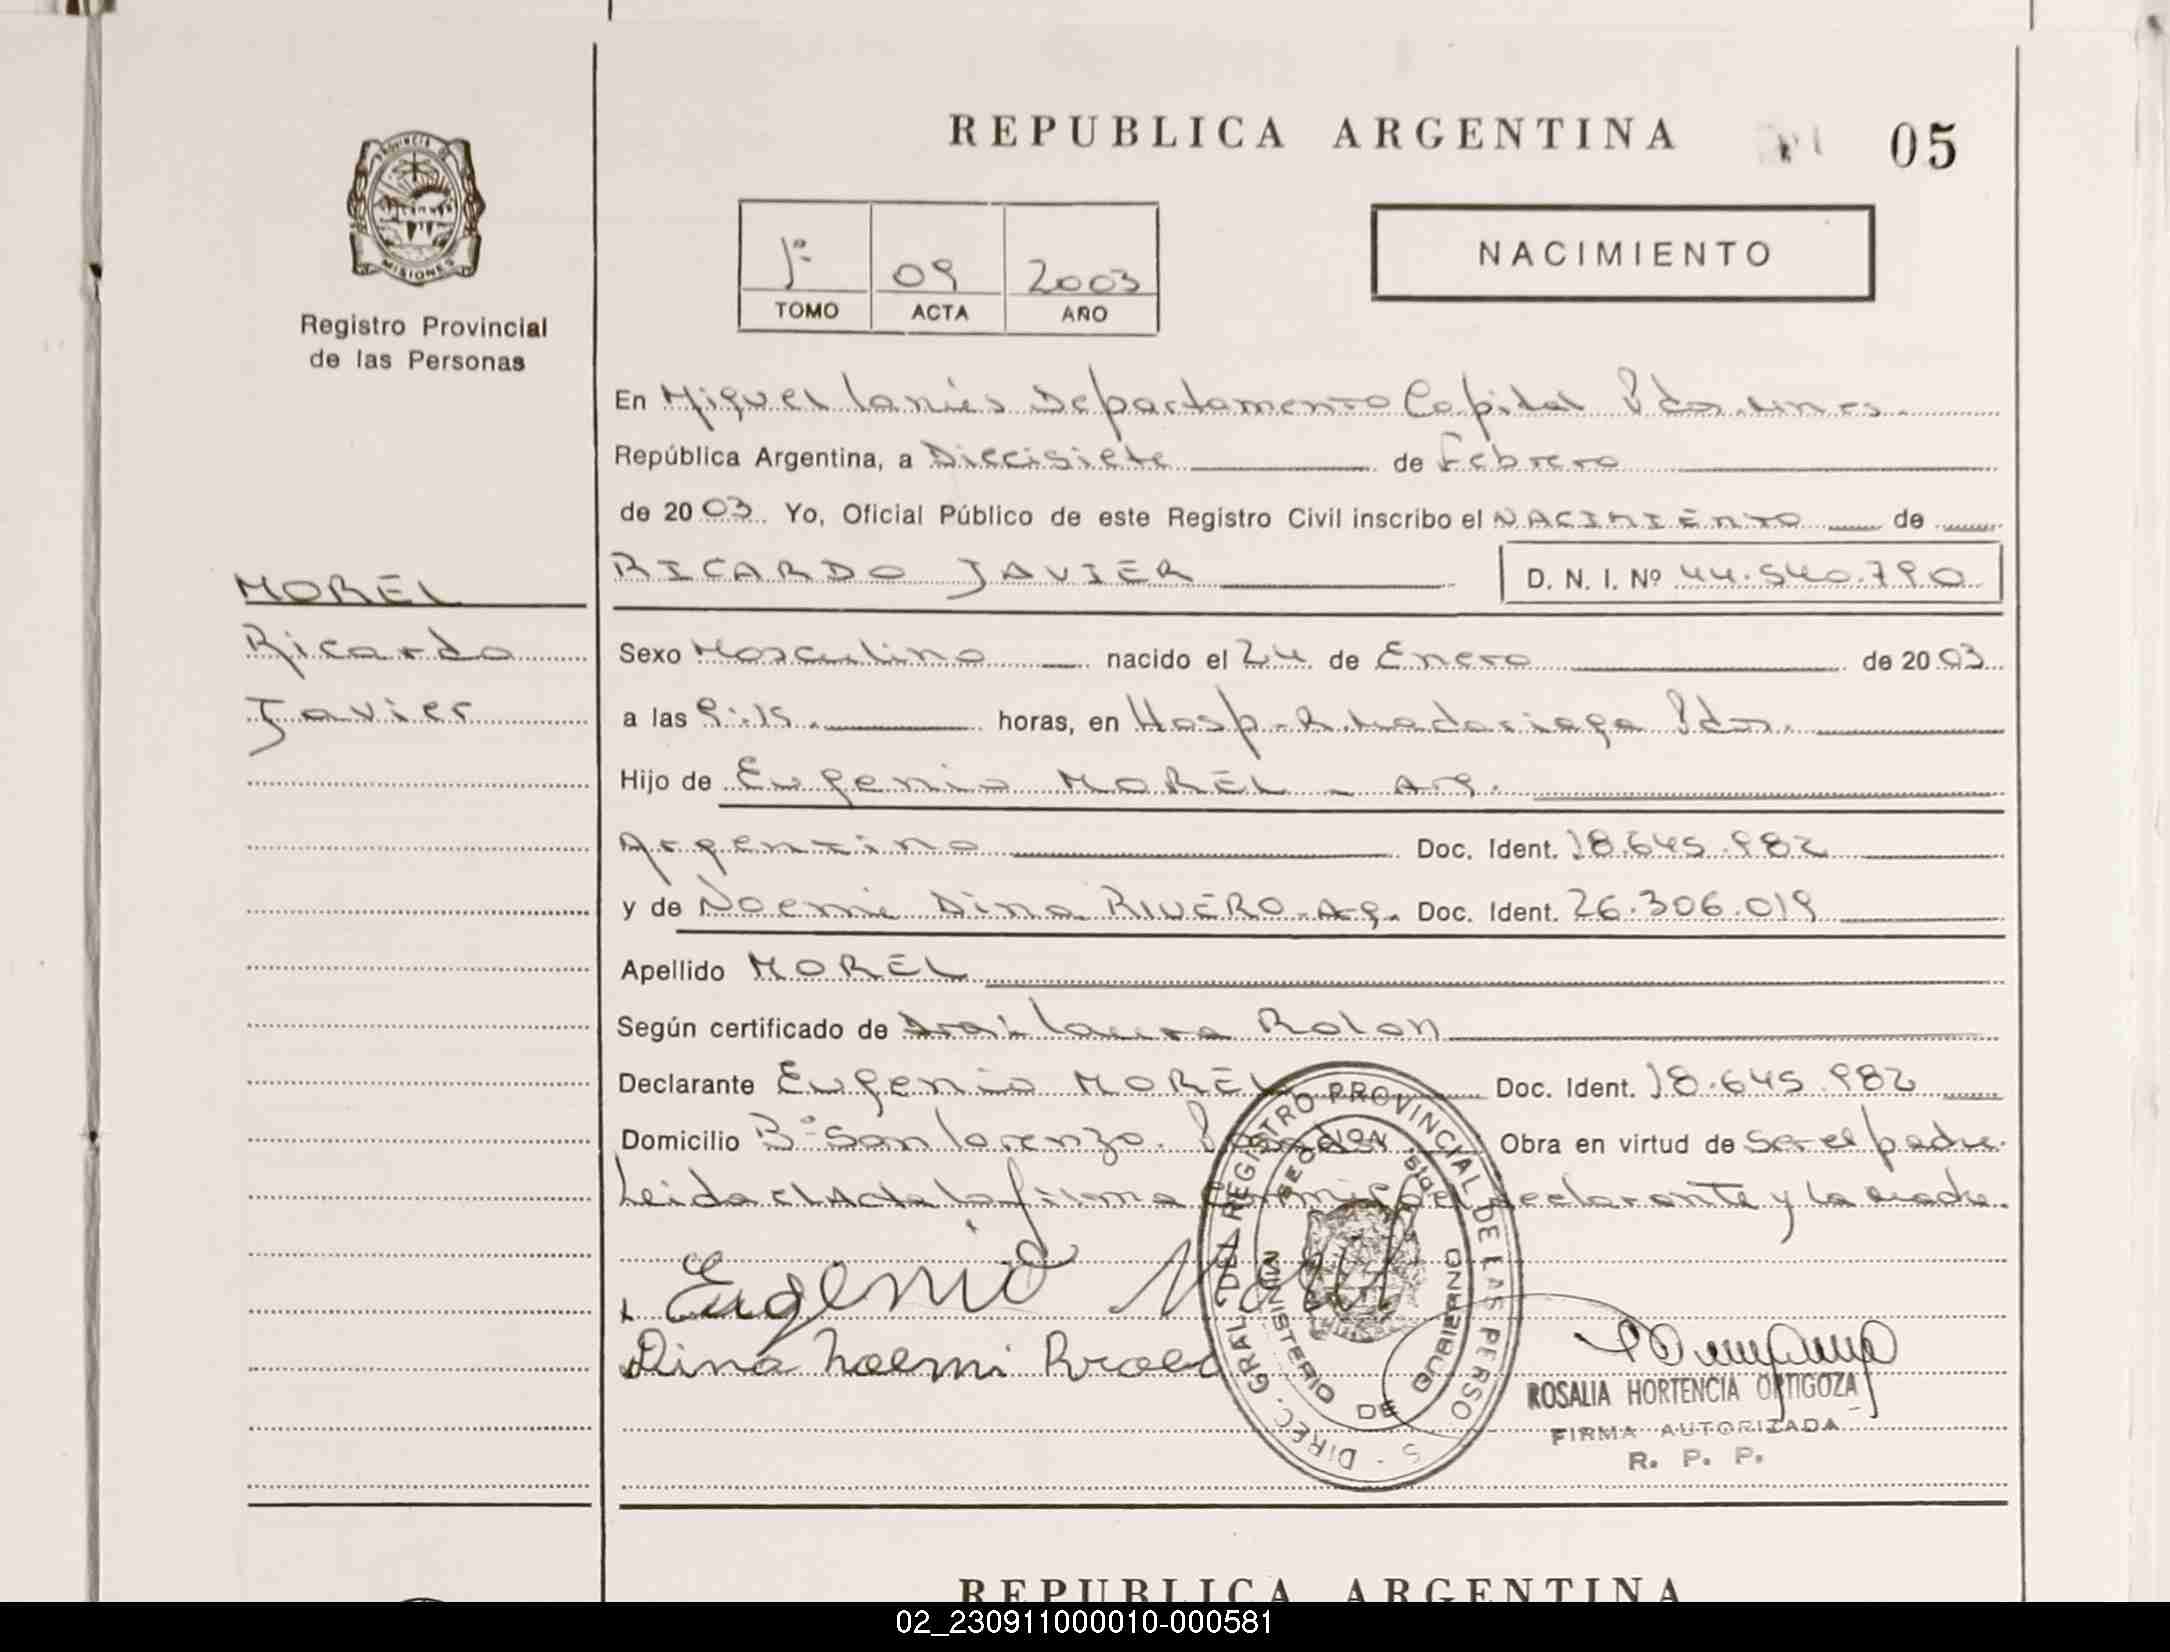 REPUBLICA ARGENTINA
05
PROVINCIA DE
MISIONES
Registro Provincial
de las Personas
1º 09 2003
TOMO ACTA AÑO
NACIMIENTO
En Miguel Lanús Departamento Capital Pdas. Mnes.
República Argentina, a Diecisiete de Febrero
de 2003. Yo, Oficial Público de este Registro Civil inscribo el NACIMIENTO de
RICARDO JAVIER D. N. I. Nº 44.540.790
MOREL
Ricardo
Javier
Sexo Masculino nacido el 24 de Enero de 2003
a las 9:15 horas, en Hosp. R. Madariaga Pdas.
Hijo de Eugenio MOREL - Arg.
Argentino Doc. Ident. 18.645.982
y de Noemi Dina RIVERO - Arg. Doc. Ident. 26.306.019
Apellido MOREL
Según certificado de Dra. Laura Rolon
Declarante Eugenio MOREL Doc. Ident. 18.645.982
Domicilio Bº San Lorenzo. Posadas Obra en virtud de ser el padre.
Leida el Acta la firma conmigo el declarante y la madre.
Eugenio Morel
Dina Noemi
DIREC. GRAL. DEL REGISTRO PROVINCIAL DE LAS PERSO
MINISTERIO DE GOBIERNO
ROSALIA HORTENCIA ORTIGOZA
FIRMA AUTORIZADA
R. P. P.
REPUBLICA ARGENTINA
02_230911000010-000581